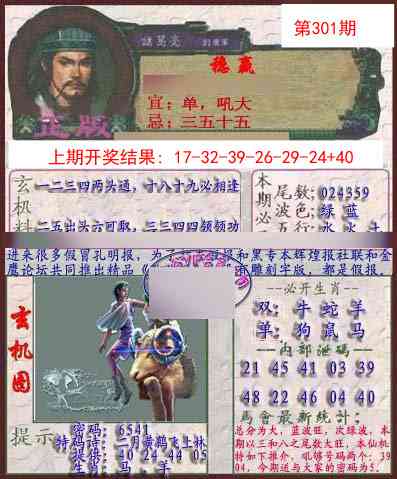 第301期
諸葛亮
稳赢
宜：单，吼大
忌：三五十五
正版
上期开奖结果：17-32-39-26-29-24+40
玄机料
一二三四两头通，十八十九必相逢
二五出头六可取，三三四四频频动
本期必
尾数：024359
波色：绿 蓝
五行：水 火 土
进来很多假冒孔明报，为了
报和黑专本辉煌报社联和金
鹰论坛共同推出精品《
有雕刻字版，都是假报。
玄机图
--必开生肖--
双：牛 蛇 羊
单：狗 鼠 马
--内部泄码--
21 45 41 03 39
48 22 46 04 40
馬會最新統計：
总分为大，蓝波旺，次绿波，本
期以三和八之尾数大旺，本仙机
特如下推介，吼够号码两个：39
04，今期送与大家的密码为5.
提示
密码：6541
特码诗：二月黄鹤飞上林
提供：40 24 44 05
生肖：马、羊